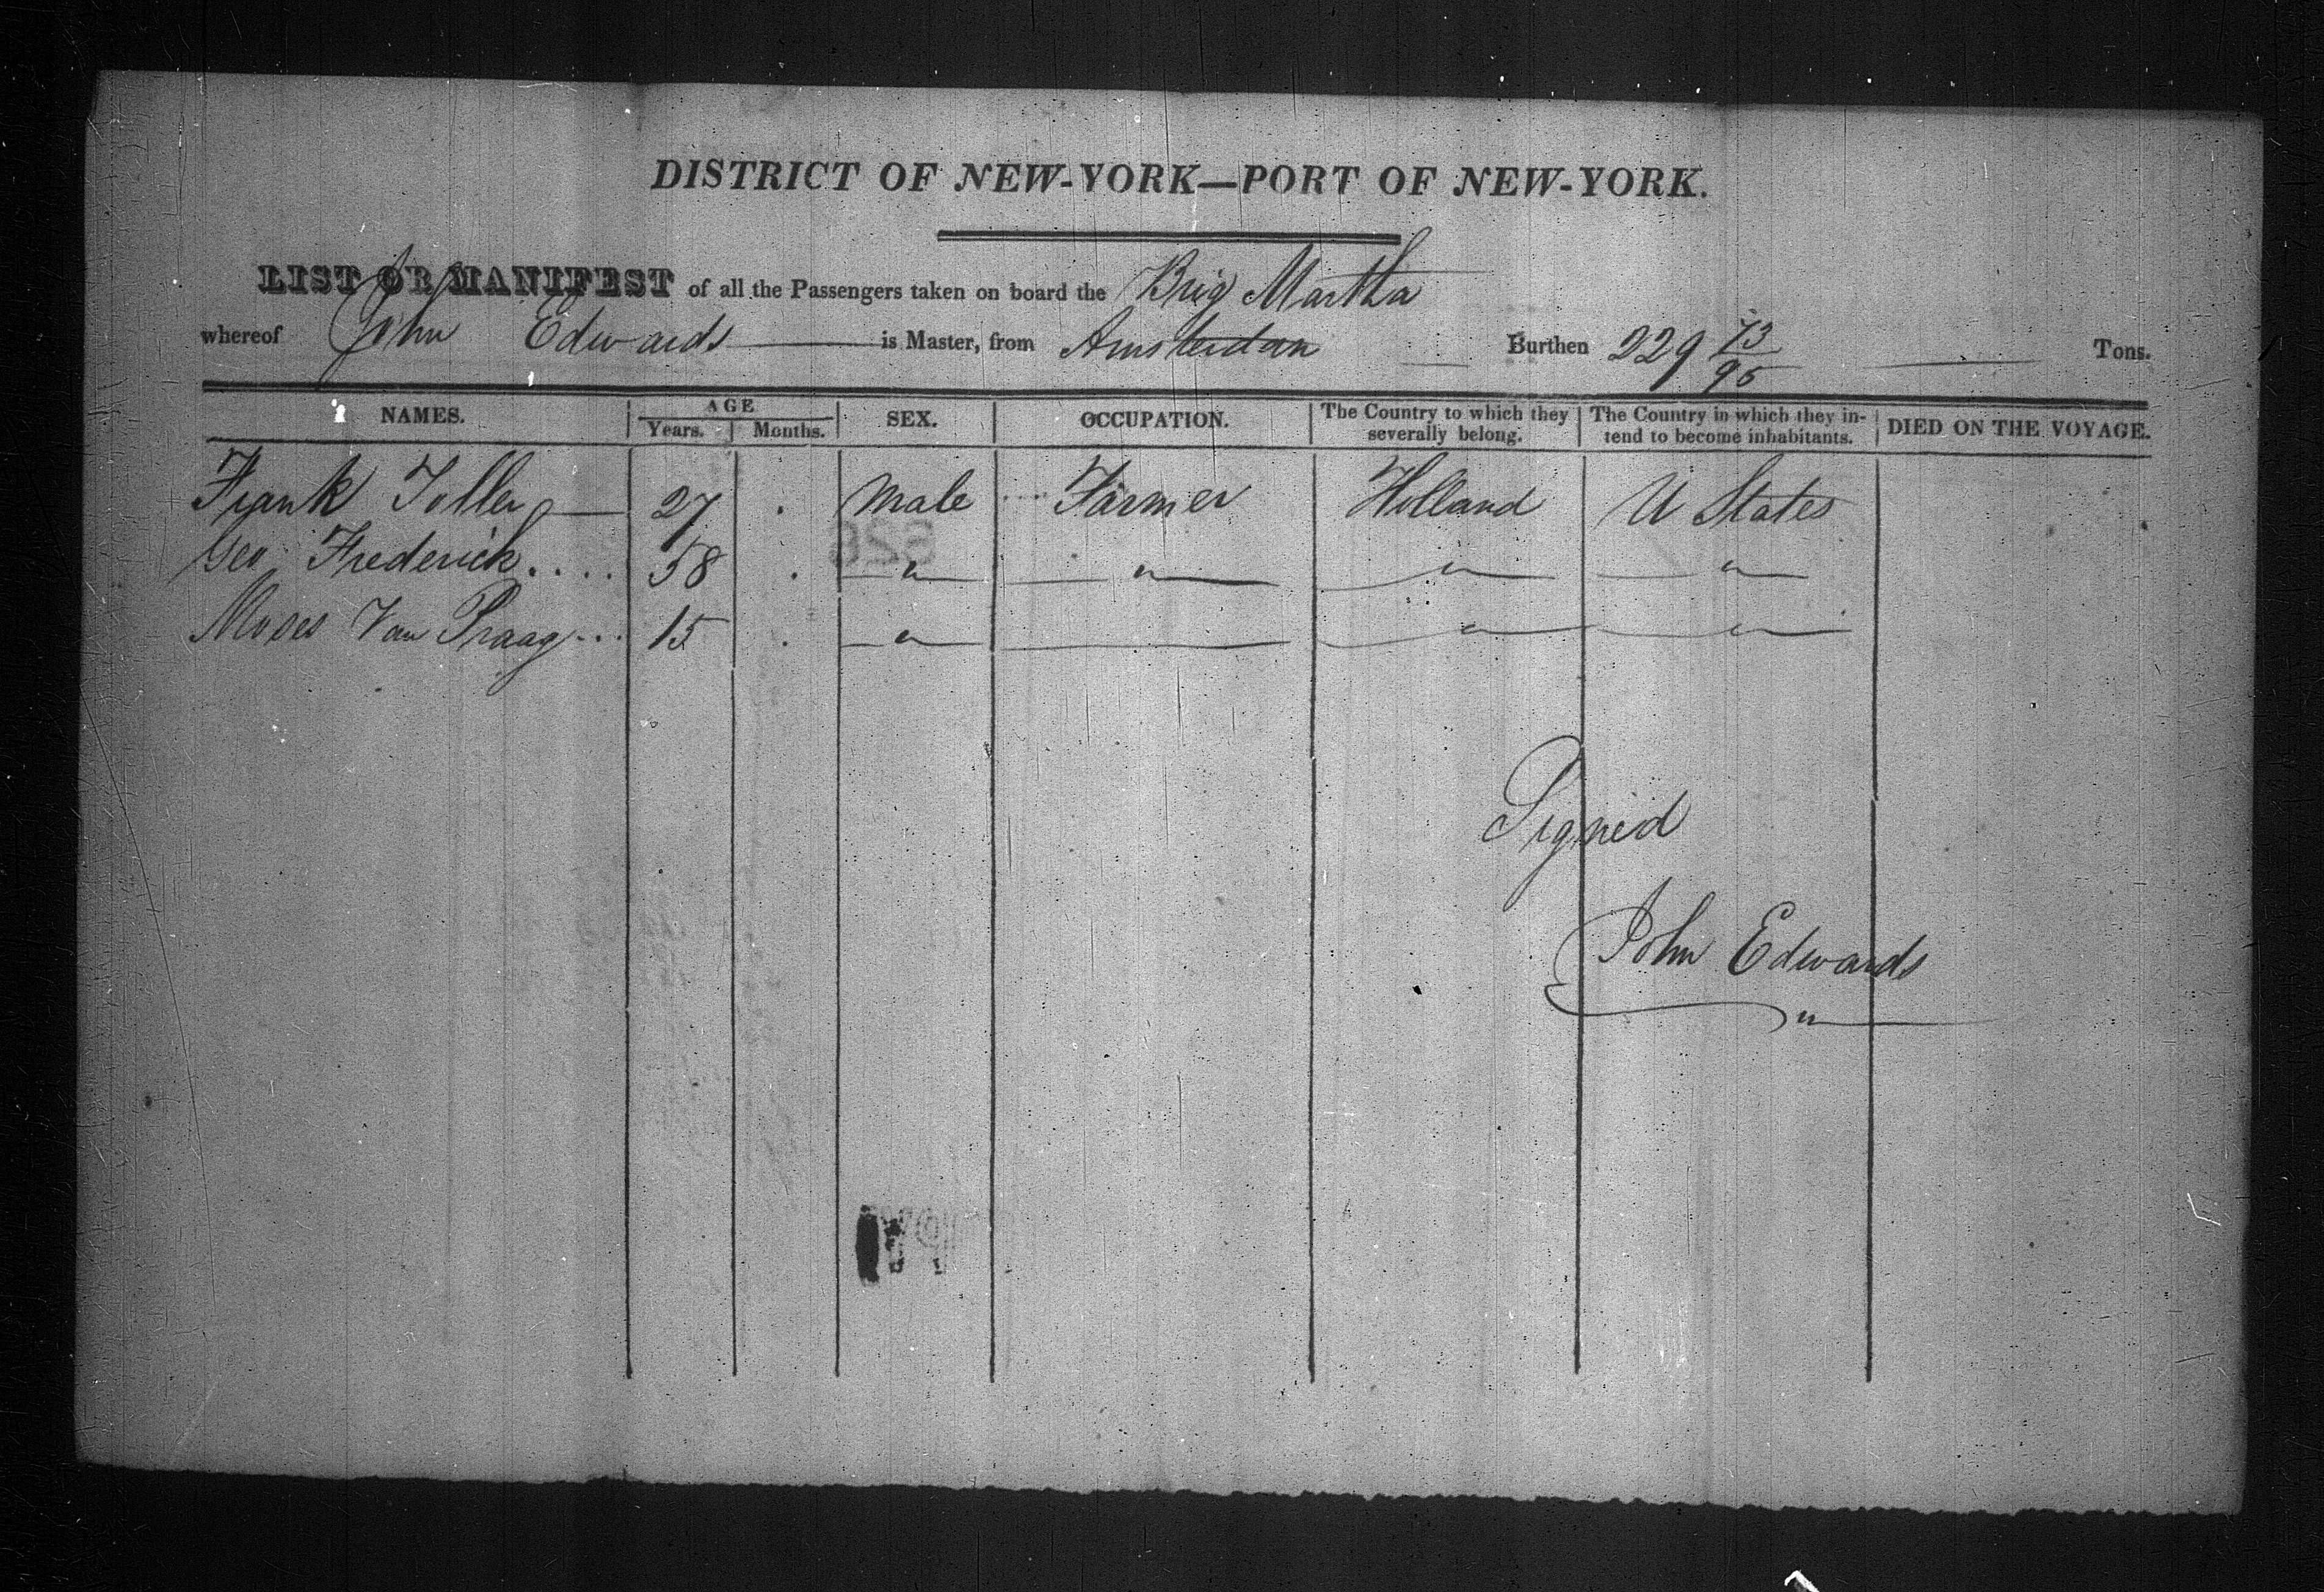 DISTRICT OF NEW-YORK—PORT OF NEW-YORK.
LIST OR MANIFEST of all the Passengers taken on board the Brig Martha
whereof John Edwards is Master, from Amsterdam Burthen 229 73/95 Tons.
NAMES. AGE Years. Months. SEX. OCCUPATION. The Country to which they severally belong. The Country in which they intend to become inhabitants. DIED ON THE VOYAGE.
Frank Toller 27 . Male Farmer Holland U States
Geo Frederick.... 58 . — " — — " — — " — — " —
Moses Van Praag... 15 . — " — — — " — — " —
Signed
John Edwards